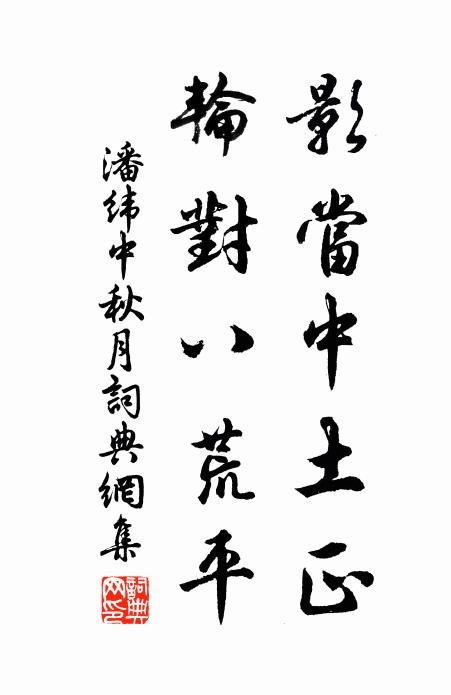 影當中土正
輪對八荒平
潘緯中秋月詞典網集
詞典網印